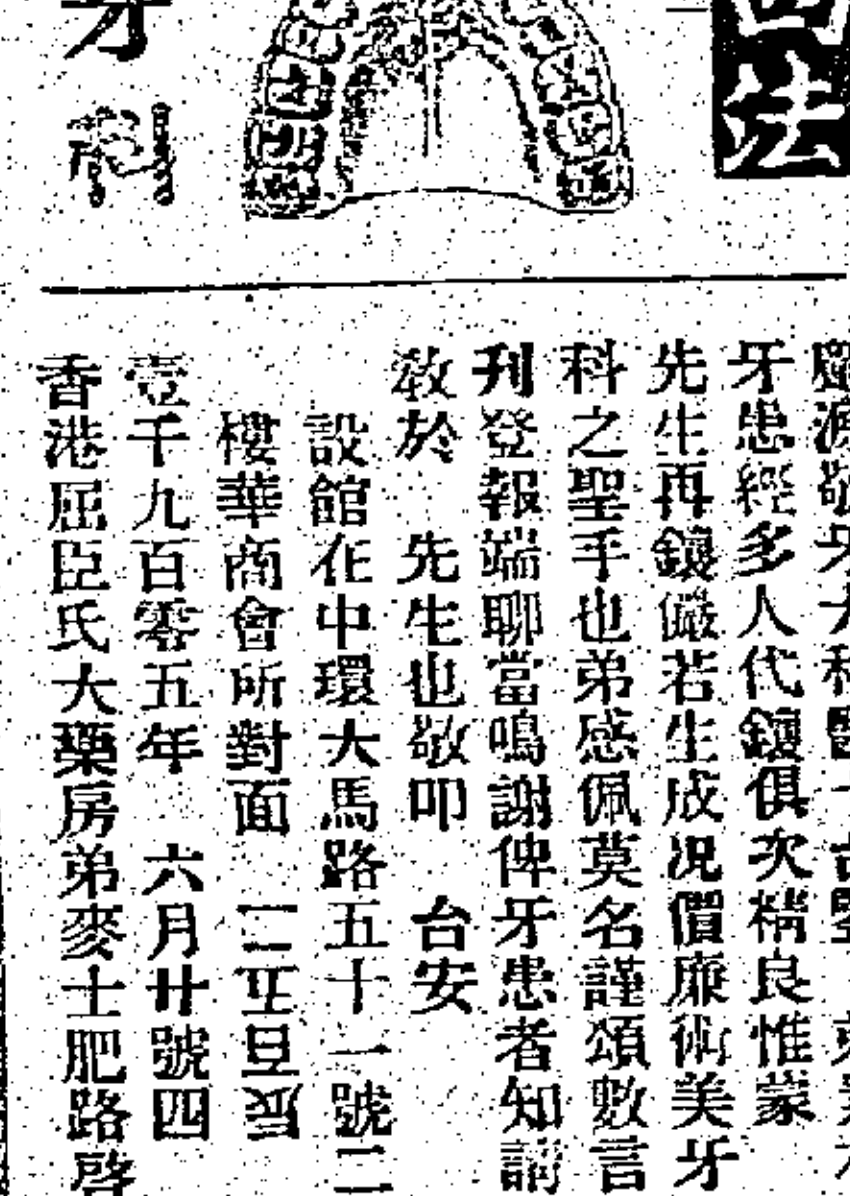 法
牙科
牙患經多人代鑲俱欠精良惟蒙
先生再鑲儼若生成况價廉術美牙
科之聖手也弟感佩莫名謹頌數言
刊登報端聊當鳴謝俾牙患者知
教於 先生也敬叩 台安
設館在中環大馬路五十一號二
樓華商會所對面
壹千九百零五年 六月廿號四
香港屈臣氏大藥房弟麥士肥路啓